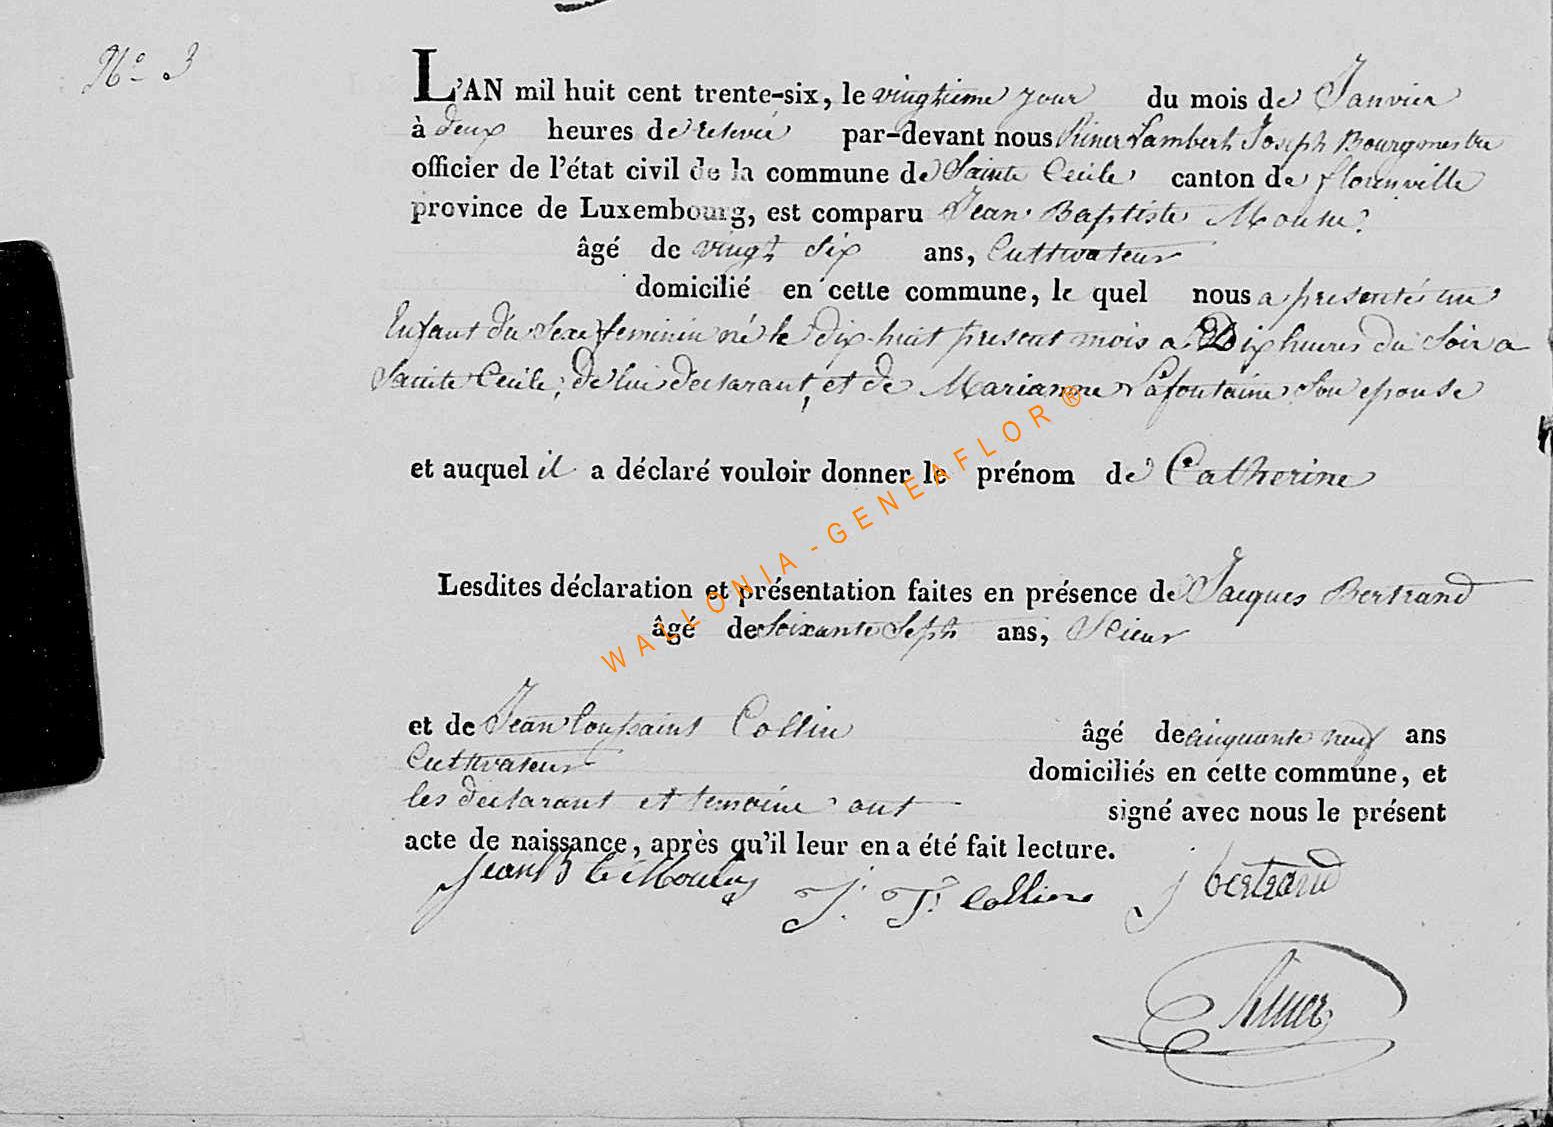 No 3
L'AN mil huit cent trente-six, le vingtieme jour du mois de Janvier
à deux heures de relevée par-devant nous Lambert Joseph Bourgmestre
officier de l'état civil de la commune de Sainte Cecile canton de florenville
province de Luxembourg, est comparu Jean Baptiste
âgé de vingt six ans, Cultivateur
domicilié en cette commune, le quel nous a presenté un
Enfant du Sexe feminin né le dix-huit present mois a Dix heures du Soir a
Sainte Cecile, de lui declarant, et de Marianne Lafontaine Son epouse
et auquel il a déclaré vouloir donner le prénom de Catherine
Lesdites déclaration et présentation faites en présence de Jacques Bertrand
âgé de Soixante Sept ans, Scieur
et de Jean Toussaint Collin âgé de cinquante neuf ans
Cultivateur domiciliés en cette commune, et
les declarant et temoins ont signé avec nous le présent
acte de naissance, après qu'il leur en a été fait lecture.
Jean B te J. T. Collin j bertrand
WALLONIA - GENEAFLOR ®